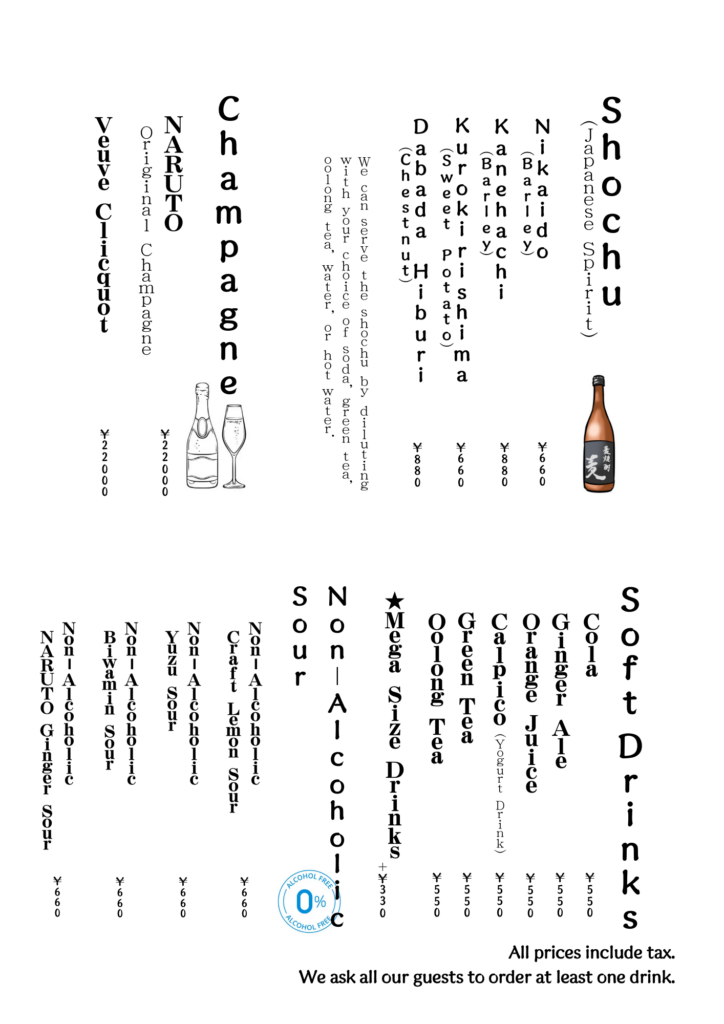 Shochu
(Japanese Spirit)
麦焼酎
麦
Nikaido
(Barley)
¥660
Kanehachi
(Barley)
¥880
Kurokirishima
(Sweet Potato)
¥660
Dabada Hiburi
(Chestnut)
¥880
We can serve the shochu by diluting
with your choice of soda, green tea,
oolong tea, water, or hot water.
Champagne
NARUTO
Original Champagne
¥22000
Veuve Clicquot
¥22000
Soft Drinks
Cola
¥550
Ginger Ale
¥550
Orange Juice
¥550
Calpico (Yogurt Drink)
¥550
Green Tea
¥550
Oolong Tea
¥550
★Mega Size Drinks
+¥330
Non-Alcoholic
Sour
ALCOHOL FREE
0%
ALCOHOL FREE
Non-Alcoholic
Craft Lemon Sour
¥660
Non-Alcoholic
Yuzu Sour
¥660
Non-Alcoholic
Biwamin Sour
¥660
Non-Alcoholic
NARUTO Ginger Sour
¥660
All prices include tax.
We ask all our guests to order at least one drink.